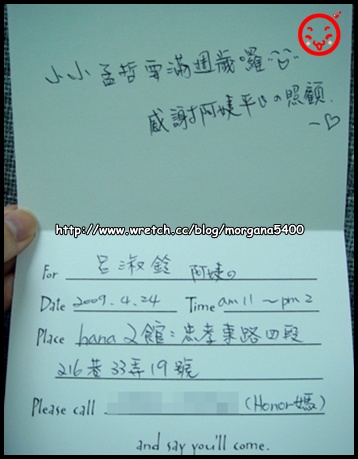 小小孟哲要滿週歲囉
感謝阿姨平日の照顧.
http://www.wretch.cc/blog/morgana5400
For 呂淑鈴 阿姨の
Date 2009.4.24 Time am 11 ~ pm 2
Place hana 2館：忠孝東路四段
216巷33弄19號
Please call (Honor媽)
and say you'll come.